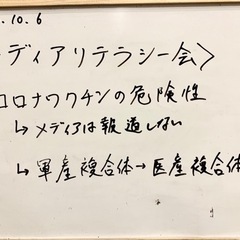 .10.6
ディアリテラシー会>
コロナワクチンの危険性
↳メディアは報道しない
↳軍産複合体→医産複合体